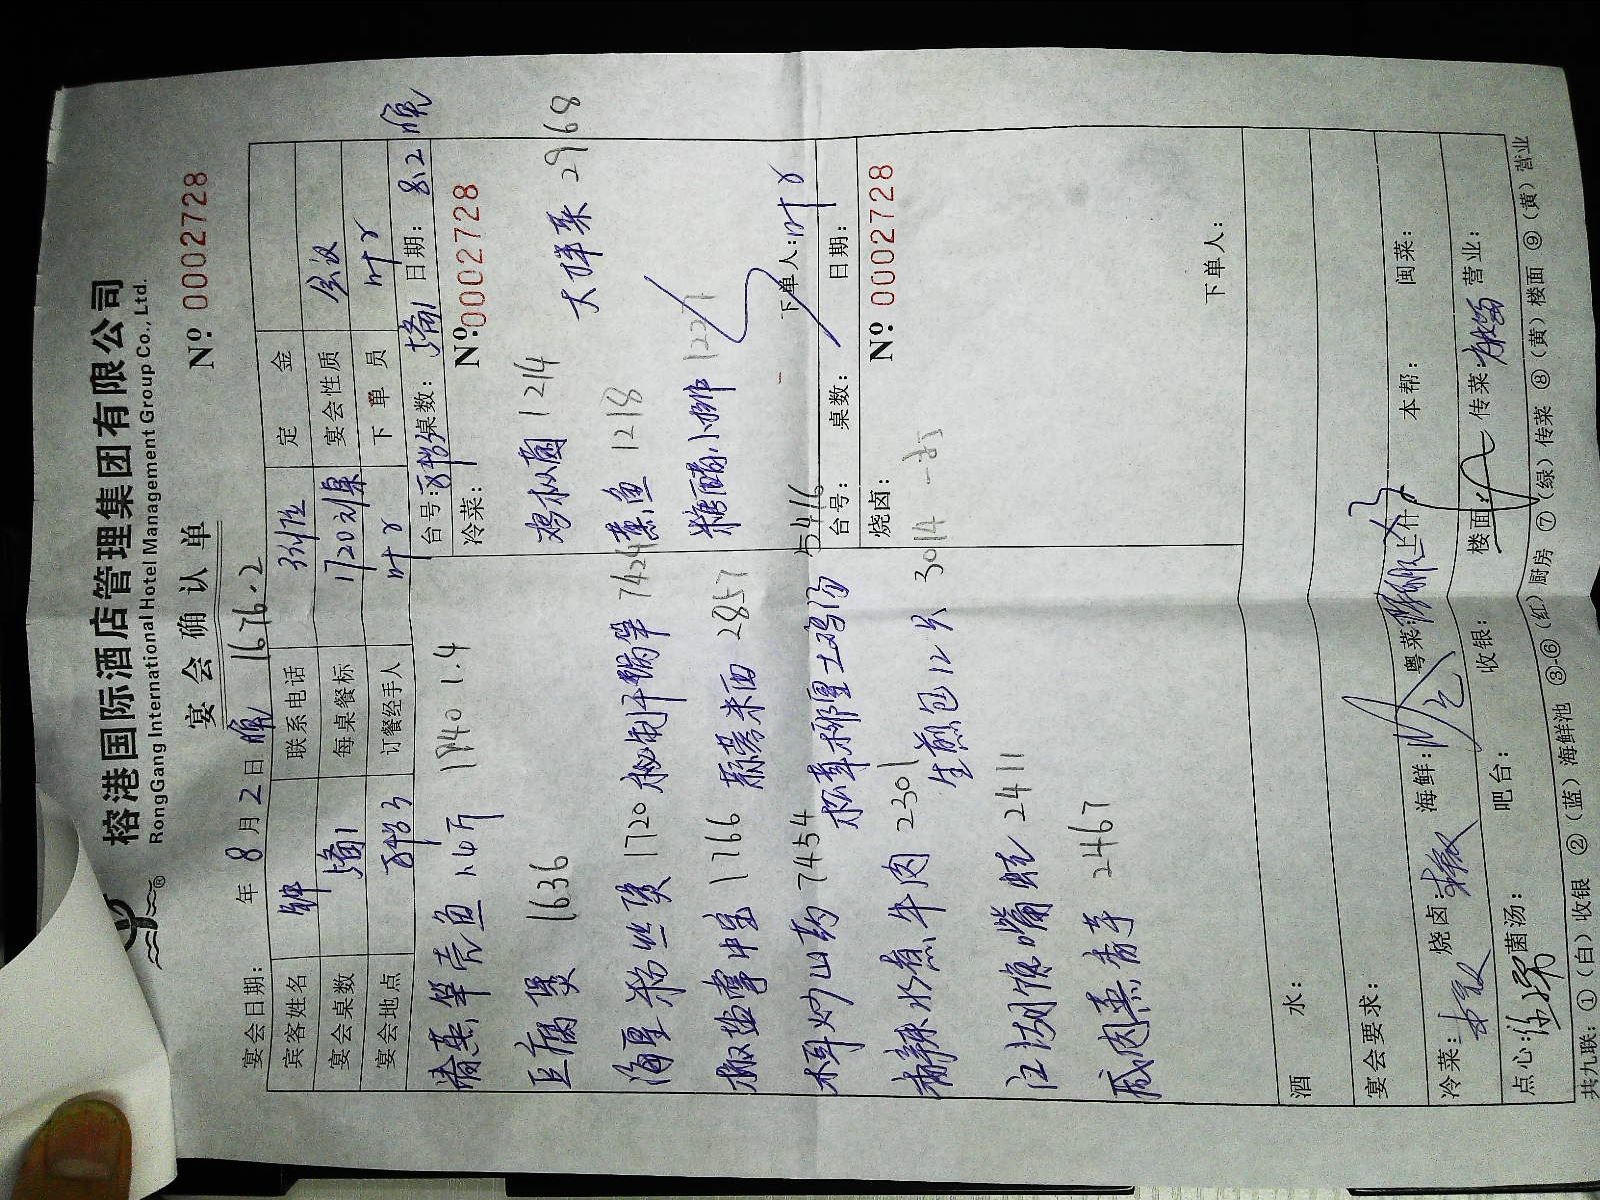 榕港国际酒店管理集团有限公司
RongGang International Hotel Management Group Co., Ltd.
宴会确认单
Nº 0002728
宴会日期： 年 8 月 2 日 晚 1676.2
宾客姓名 联系电话 定金
宴会桌数 1 每桌餐标 1720 宴会性质 会议
宴会地点 订餐经手人 叶 下单员 叶
台号： 桌数： 1 日期： 8.2 晚
冷菜： Nº 0002728
清蒸笋壳鱼 1.4斤 1740 1.4
豆腐煲 1636
鸡枞菌 1214 大拌菜 2968
海星粉丝煲 1720 秘制干锅笋 7424
熏鱼 1218
椒盐掌中宝 1766 蒜蓉米面 2857
糖醋小排 1227
下单人：叶
木耳炒山药 7454 松茸椰皇土鸡汤 5416
台号： 桌数： 日期：
烧卤： Nº 0002728
麻辣水煮牛肉 2301 生煎包12只 3014 一打
江湖馋嘴蛙 2411
咸肉蒸香芋 2467
下单人：
酒 水：
宴会要求：
冷菜： 烧卤： 海鲜： 粤菜： 上什： 本帮： 闽菜：
点心： 菌汤： 吧台： 收银： 楼面： 传菜： 营业：
共九联：①（白）收银 ②（蓝）海鲜池 ③-⑥（红）厨房 ⑦（绿）传菜 ⑧（黄）楼面 ⑨（黄）营业